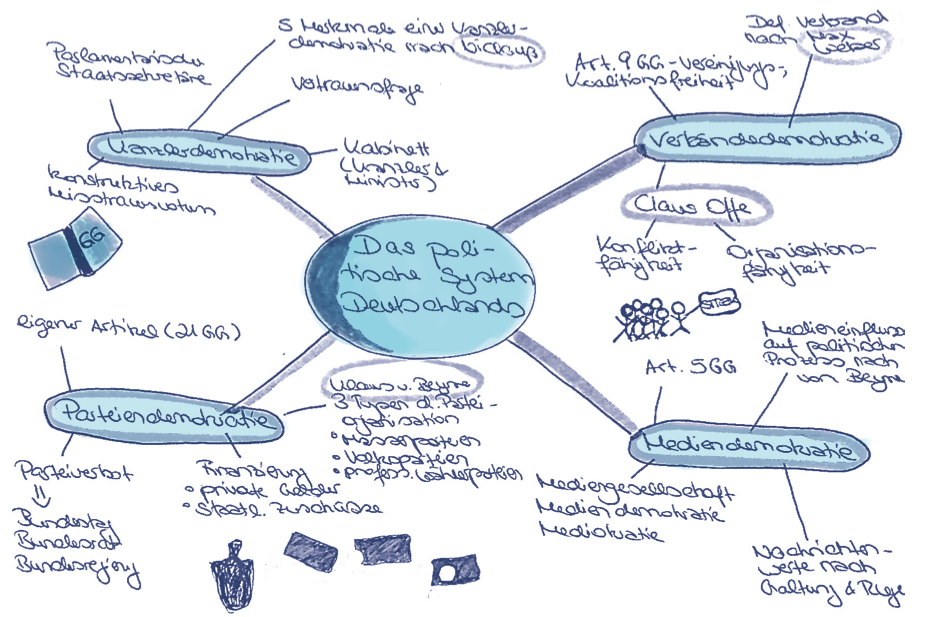 Das poli-
tische System
Deutschlands
Kanzlerdemokratie
Parlamentarische
Staatssekretäre
5 Merkmale einer Kanzler-
demokratie nach Nicklauß
Vertrauensfrage
Kabinett
(Kanzler &
Minister)
konstruktives
Misstrauensvotum
GG
Verbändedemokratie
Art. 9 GG - Vereinigungs-,
Koalitionsfreiheit
Def. Verband
nach Max
Weber
Claus Offe
Konflikt-
fähigkeit
Organisations-
fähigkeit
Parteiendemokratie
eigener Artikel (21 GG)
Klaus v. Beyme
3 Typen d. Partei-
organisation
• Massenparteien
• Volksparteien
• profess. Wählerparteien
Parteiverbot
⇓
Bundestag
Bundesrat
Bundesregierung
Finanzierung
• private Gelder
• Staatl. Zuschüsse
Mediendemokratie
Art. 5 GG
Medieneinfluss
auf politischen
Prozess nach
von Beyme
Mediengesellschaft
Mediendemokratie
Mediokratie
Nachrichten-
werte nach
Galtung & Ruge